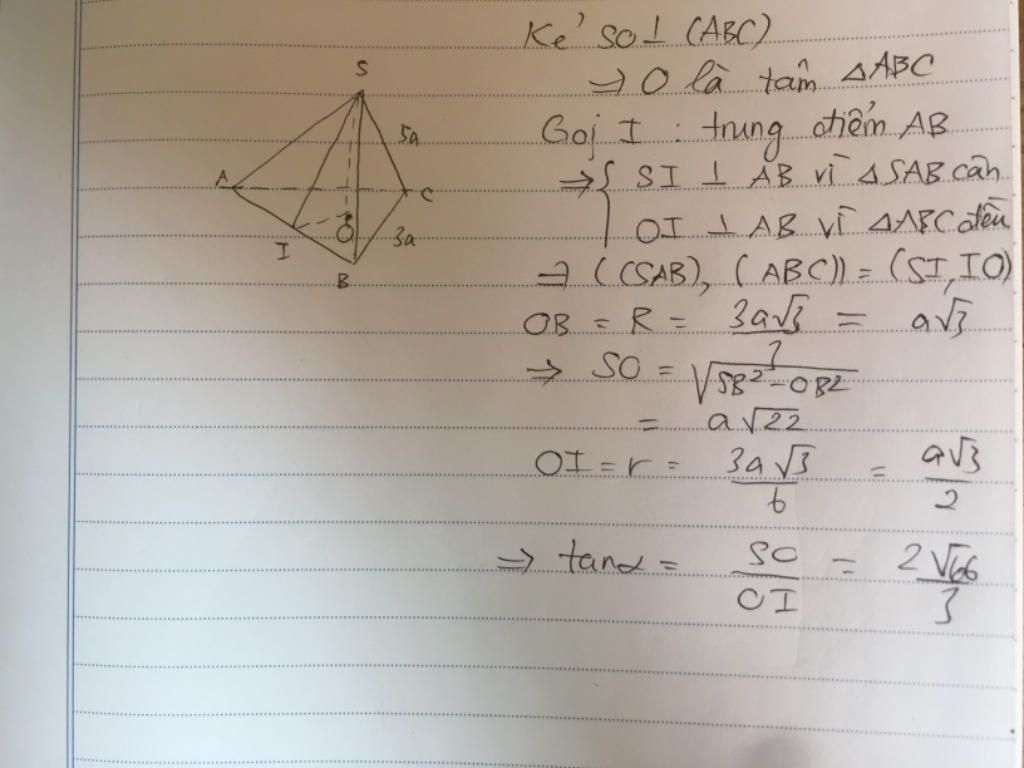 Kẻ SO ⊥ (ABC)
⇒ O là tâm △ABC
Gọi I : trung điểm AB
⇒ { SI ⊥ AB vì △SAB cân
OI ⊥ AB vì △ABC đều
⇒ ((SAB), (ABC)) = (SI, IO)
OB = R = 3a√3/3 = a√3
⇒ SO = √(SB² - OB²)
= a√22
OI = r = 3a√3/6 = a√3/2
⇒ tanα = SO/OI = 2√66/3
S
5a
A
C
O
3a
I
B